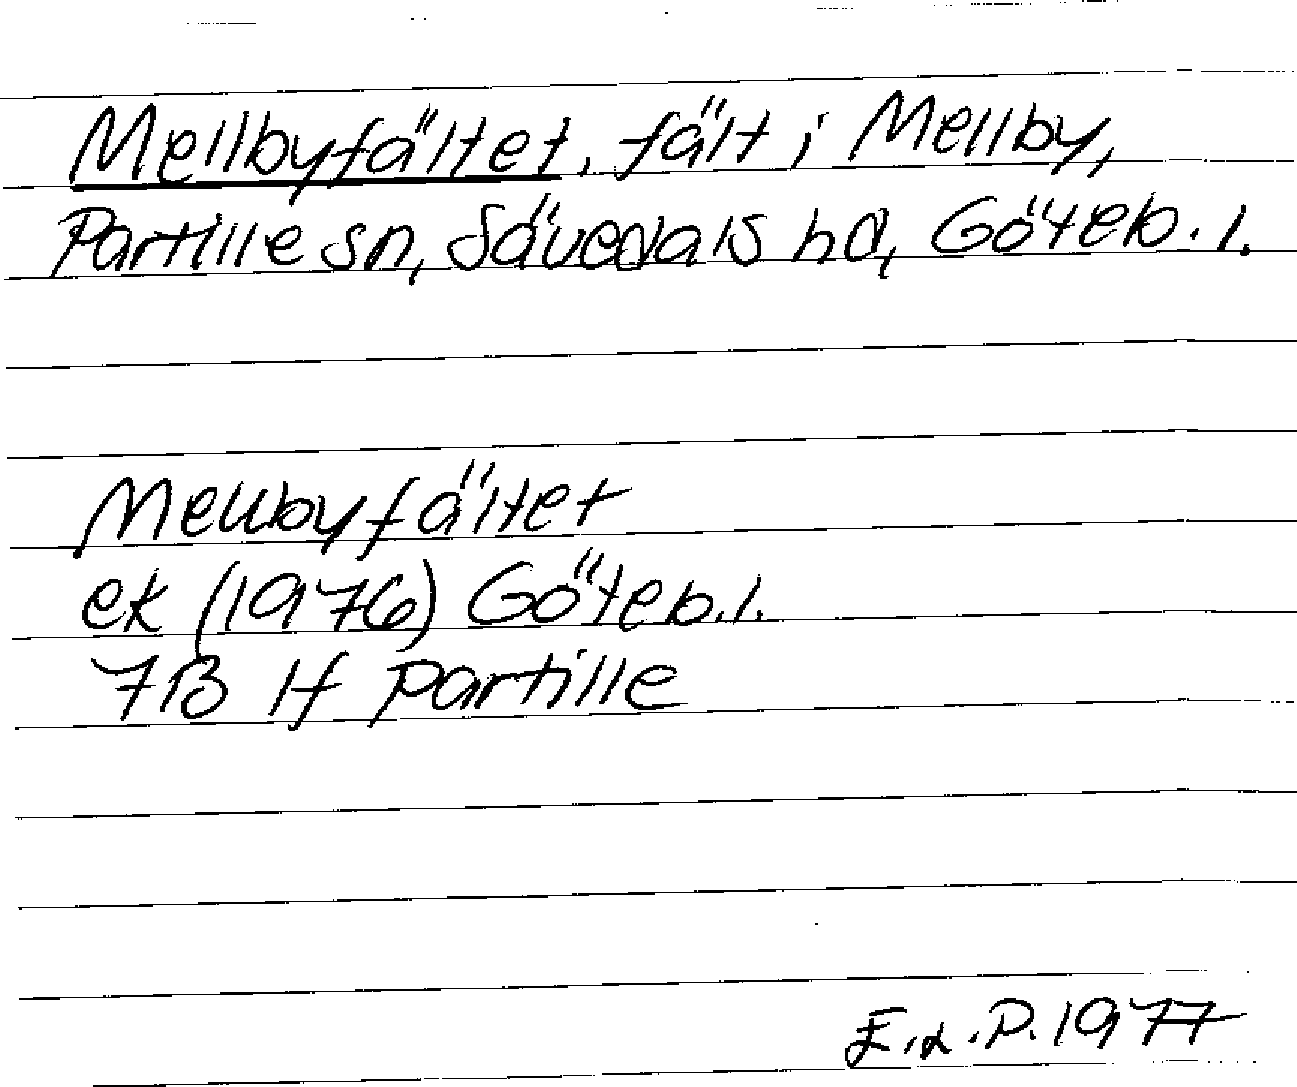 Mellbyfältet, fält i Mellby,
Partille sn, Sävedals hd, Göteb. l.
Mellbyfältet
ek (1976) Göteb. l.
7B 1f Partille
E.α.P. 1977